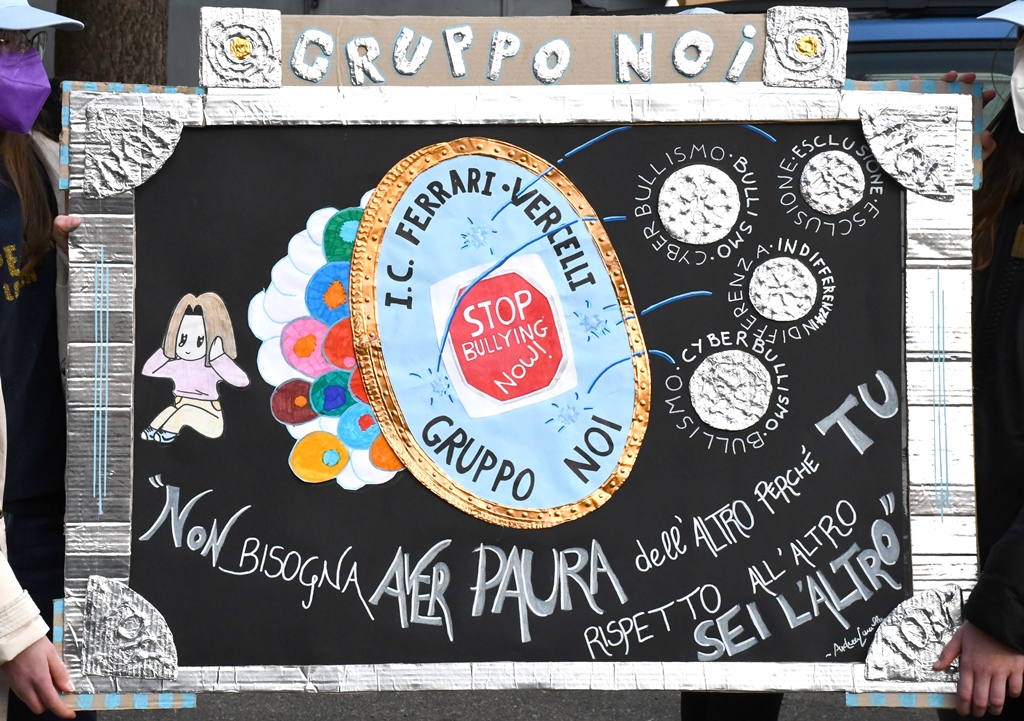 GRUPPO NOi
I.C. FERRARI · VERCELLI
STOP
BULLYING
NOW!
GRUPPO NOI
CYBERBULLISMO · BULLISMO ·
ESCLUSIONE · ESCLUSIONE ·
INDIFFERENZA · INDIFFERENZA ·
CYBERBULLISMO · BULLISMO ·
"NON BISOGNA AVER PAURA dell'ALTRO PERCHÉ TU
RISPETTO ALL'ALTRO
SEI L'ALTRO"